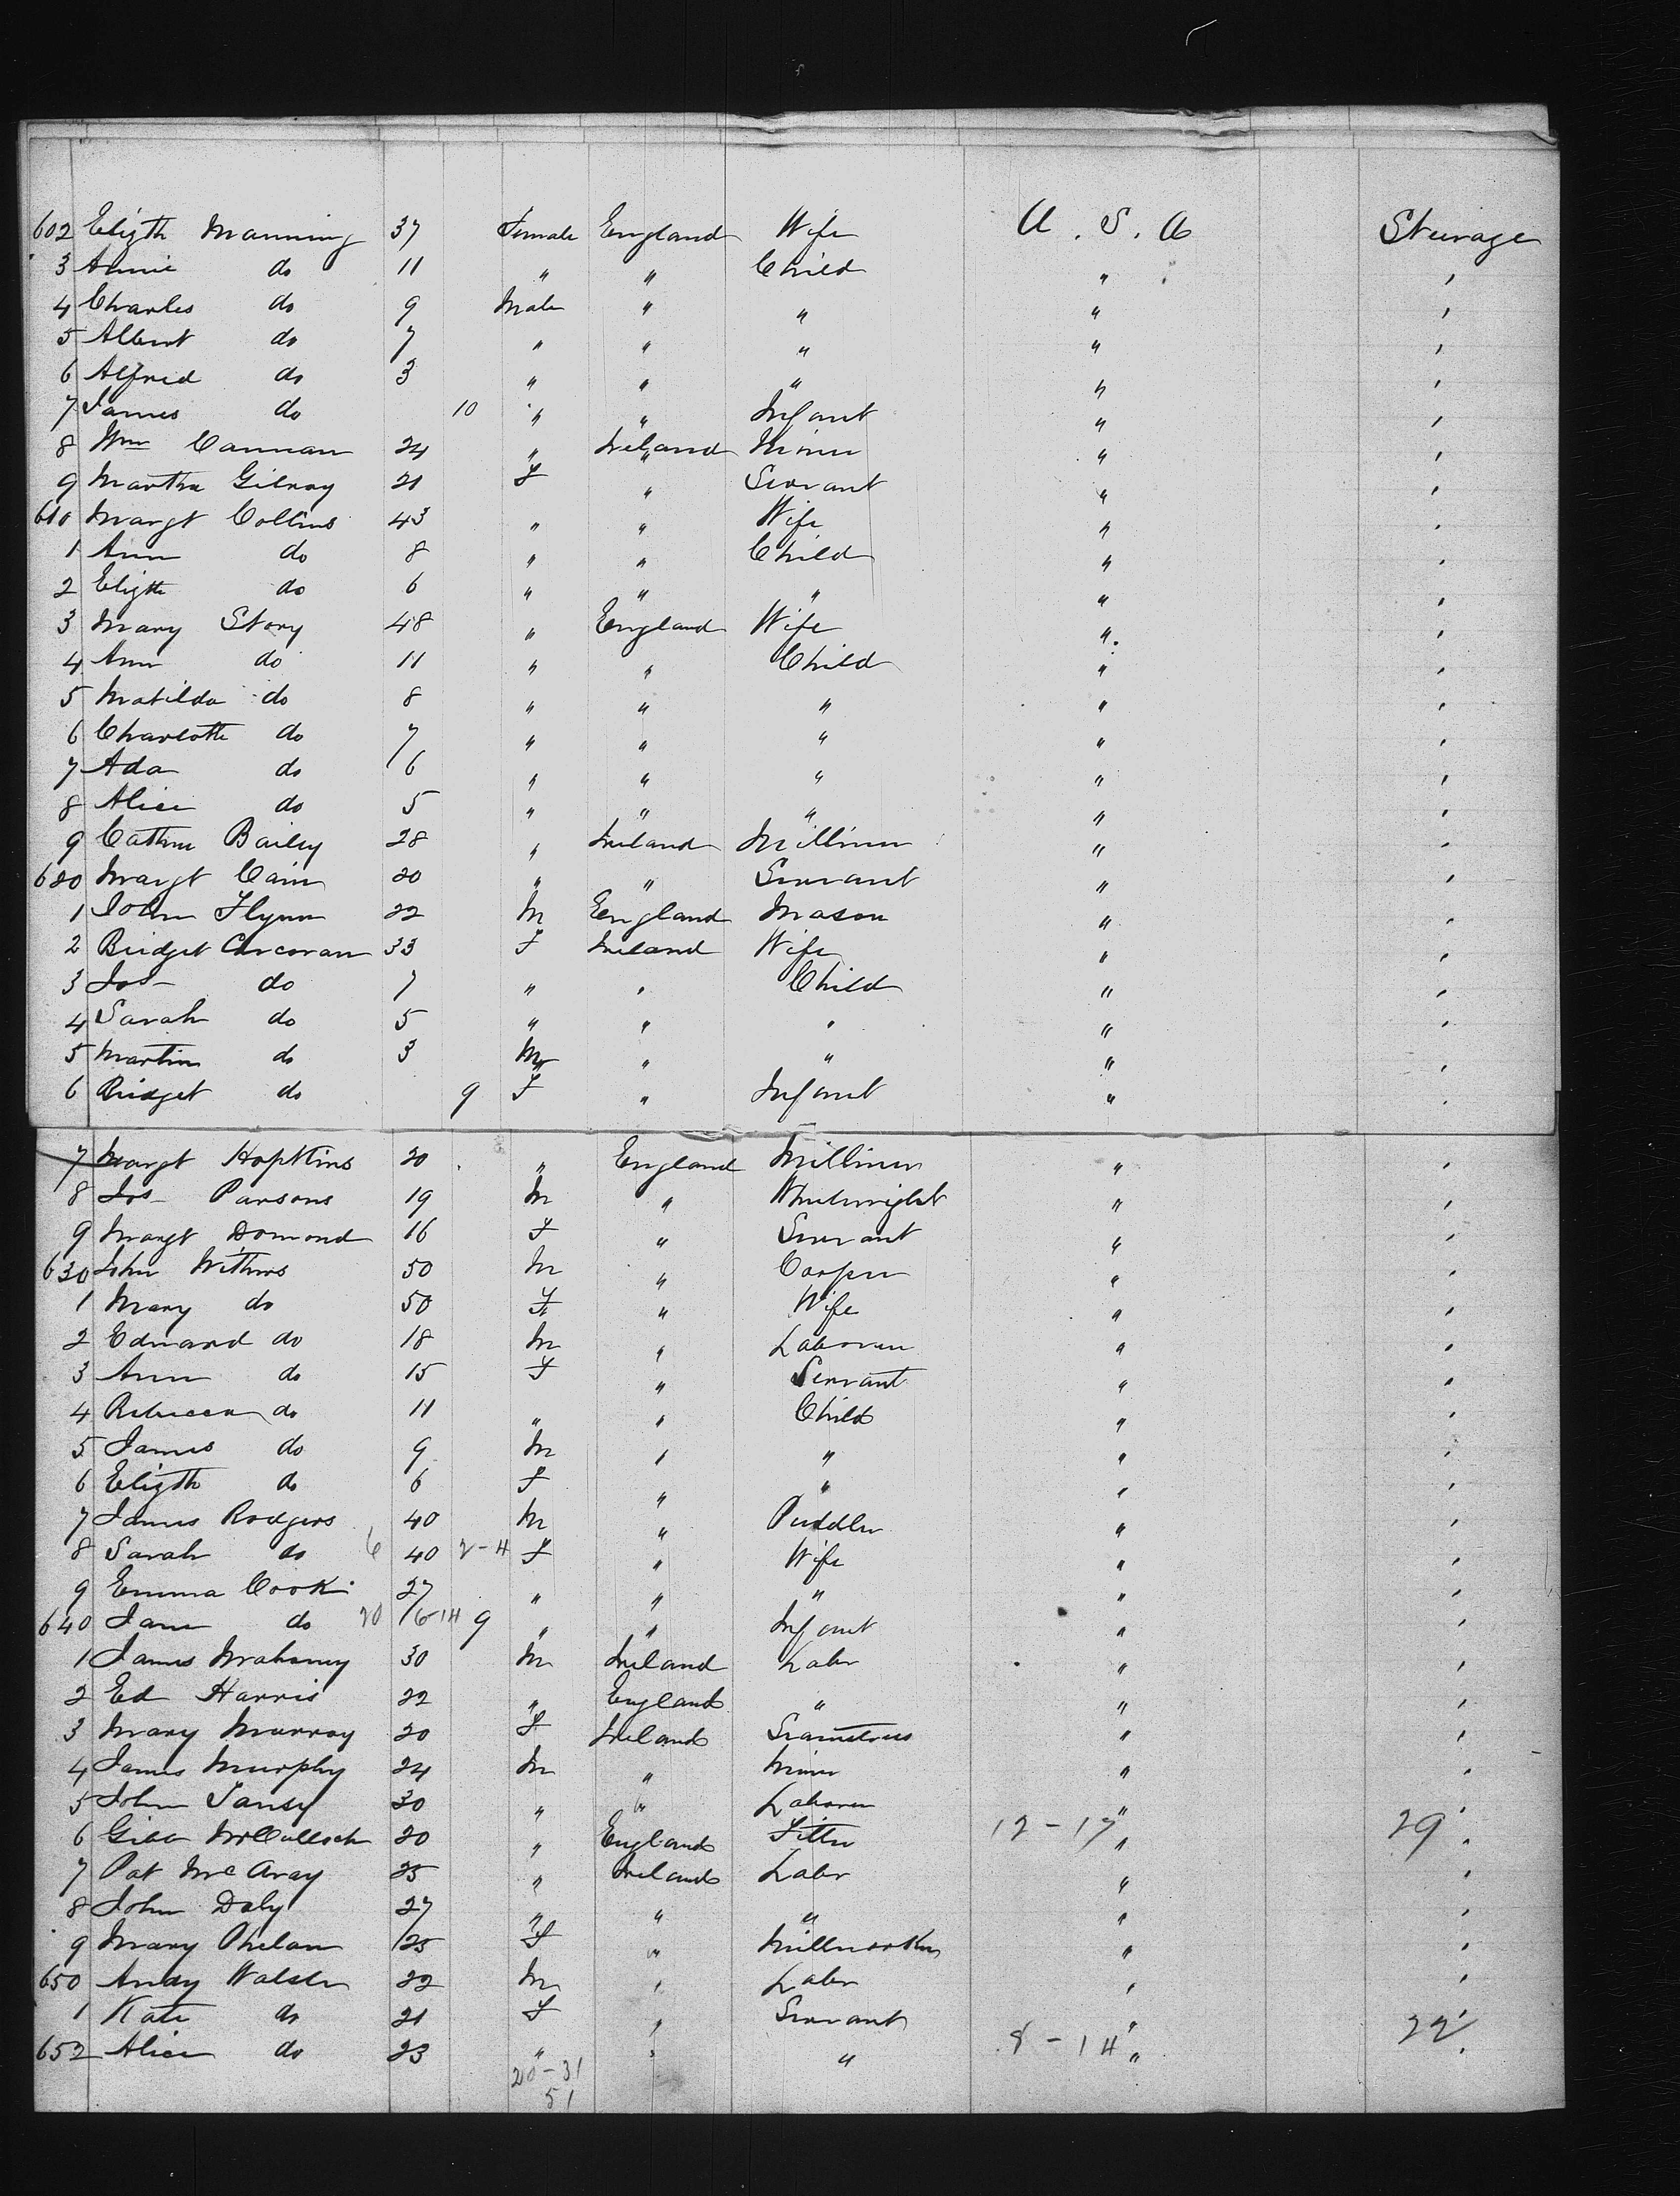 602 Elizth Manning 37 Female England Wife U.S.A Steerage
3 Annie do 11 " " Child " "
4 Charles do 9 Male " " " "
5 Albert do 7 " " " " "
6 Alfred do 3 " " " " "
7 James do 10 " " Infant " "
8 Wm Cannan 24 " Ireland Miner " "
9 Martha Gilroy 21 F " Servant " "
610 Margt Collins 43 " " Wife " "
1 Ann do 8 " " Child " "
2 Elizth do 6 " " " " "
3 Mary Story 48 " England Wife " "
4 Ann do 11 " " Child " "
5 Matilda do 8 " " " " "
6 Charlotte do 7 " " " " "
7 Ada do 6 " " " " "
8 Alice do 5 " " " " "
9 Cathne Bailey 28 " Ireland Milliner " "
620 Margt Cain 20 " " Servant " "
1 John Flynn 22 M England Mason " "
2 Bridget Corcoran 33 F Ireland Wife " "
3 Jos do 7 " " Child " "
4 Sarah do 5 " " " " "
5 Martin do 3 M " " " "
6 Bridget do 9 F " Infant " "
7 Margt Hopkins 20 " England Milliner " "
8 Jos Parsons 19 M " Wheelwright " "
9 Margt Domond 16 F " Servant " "
630 John Withers 50 M " Carper " "
1 Mary do 50 F " Wife " "
2 Edward do 18 M " Laborer " "
3 Ann do 15 F " Servant " "
4 Rebecca do 11 " " Child " "
5 James do 9 M " " " "
6 Elizth do 6 F " " " "
7 James Rodgers 40 M " Puddler " "
8 Sarah do 6 40 2-4 F " Wife " "
9 Emma Cook 27 " " " " "
640 Jane do 20 16-14 9 " " Infant " "
1 James Mahoney 30 M Ireland Labr " "
2 Ed Harris 22 " England " " "
3 Mary Murray 20 F Ireland Seamstress " "
4 James Murphy 24 M " Miner " "
5 John Tansey 30 " " Laborer " "
6 McCulloch 20 " England Fitter 12-17 " 29 "
7 Pat McAray 25 " Ireland Labr " "
8 John Daly 27 " " " " "
9 Mary Phelan 25 F " Millworker " "
650 Andy Walsh 22 M " Labr " "
1 Kate do 21 F " Servant " "
652 Alice do 23 " " " 8-14 " 22 "
20-31
51